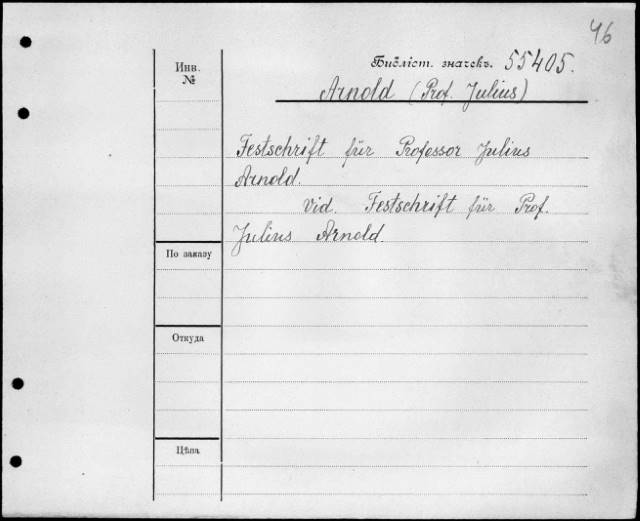 46
Библіот. значекъ. 55405.
Инв.
№
Arnold (Prof. Julius)
Festschrift für Professor Julius
Arnold.
vid. Festschrift für Prof.
Julius Arnold.
По заказу
Откуда
Цѣна